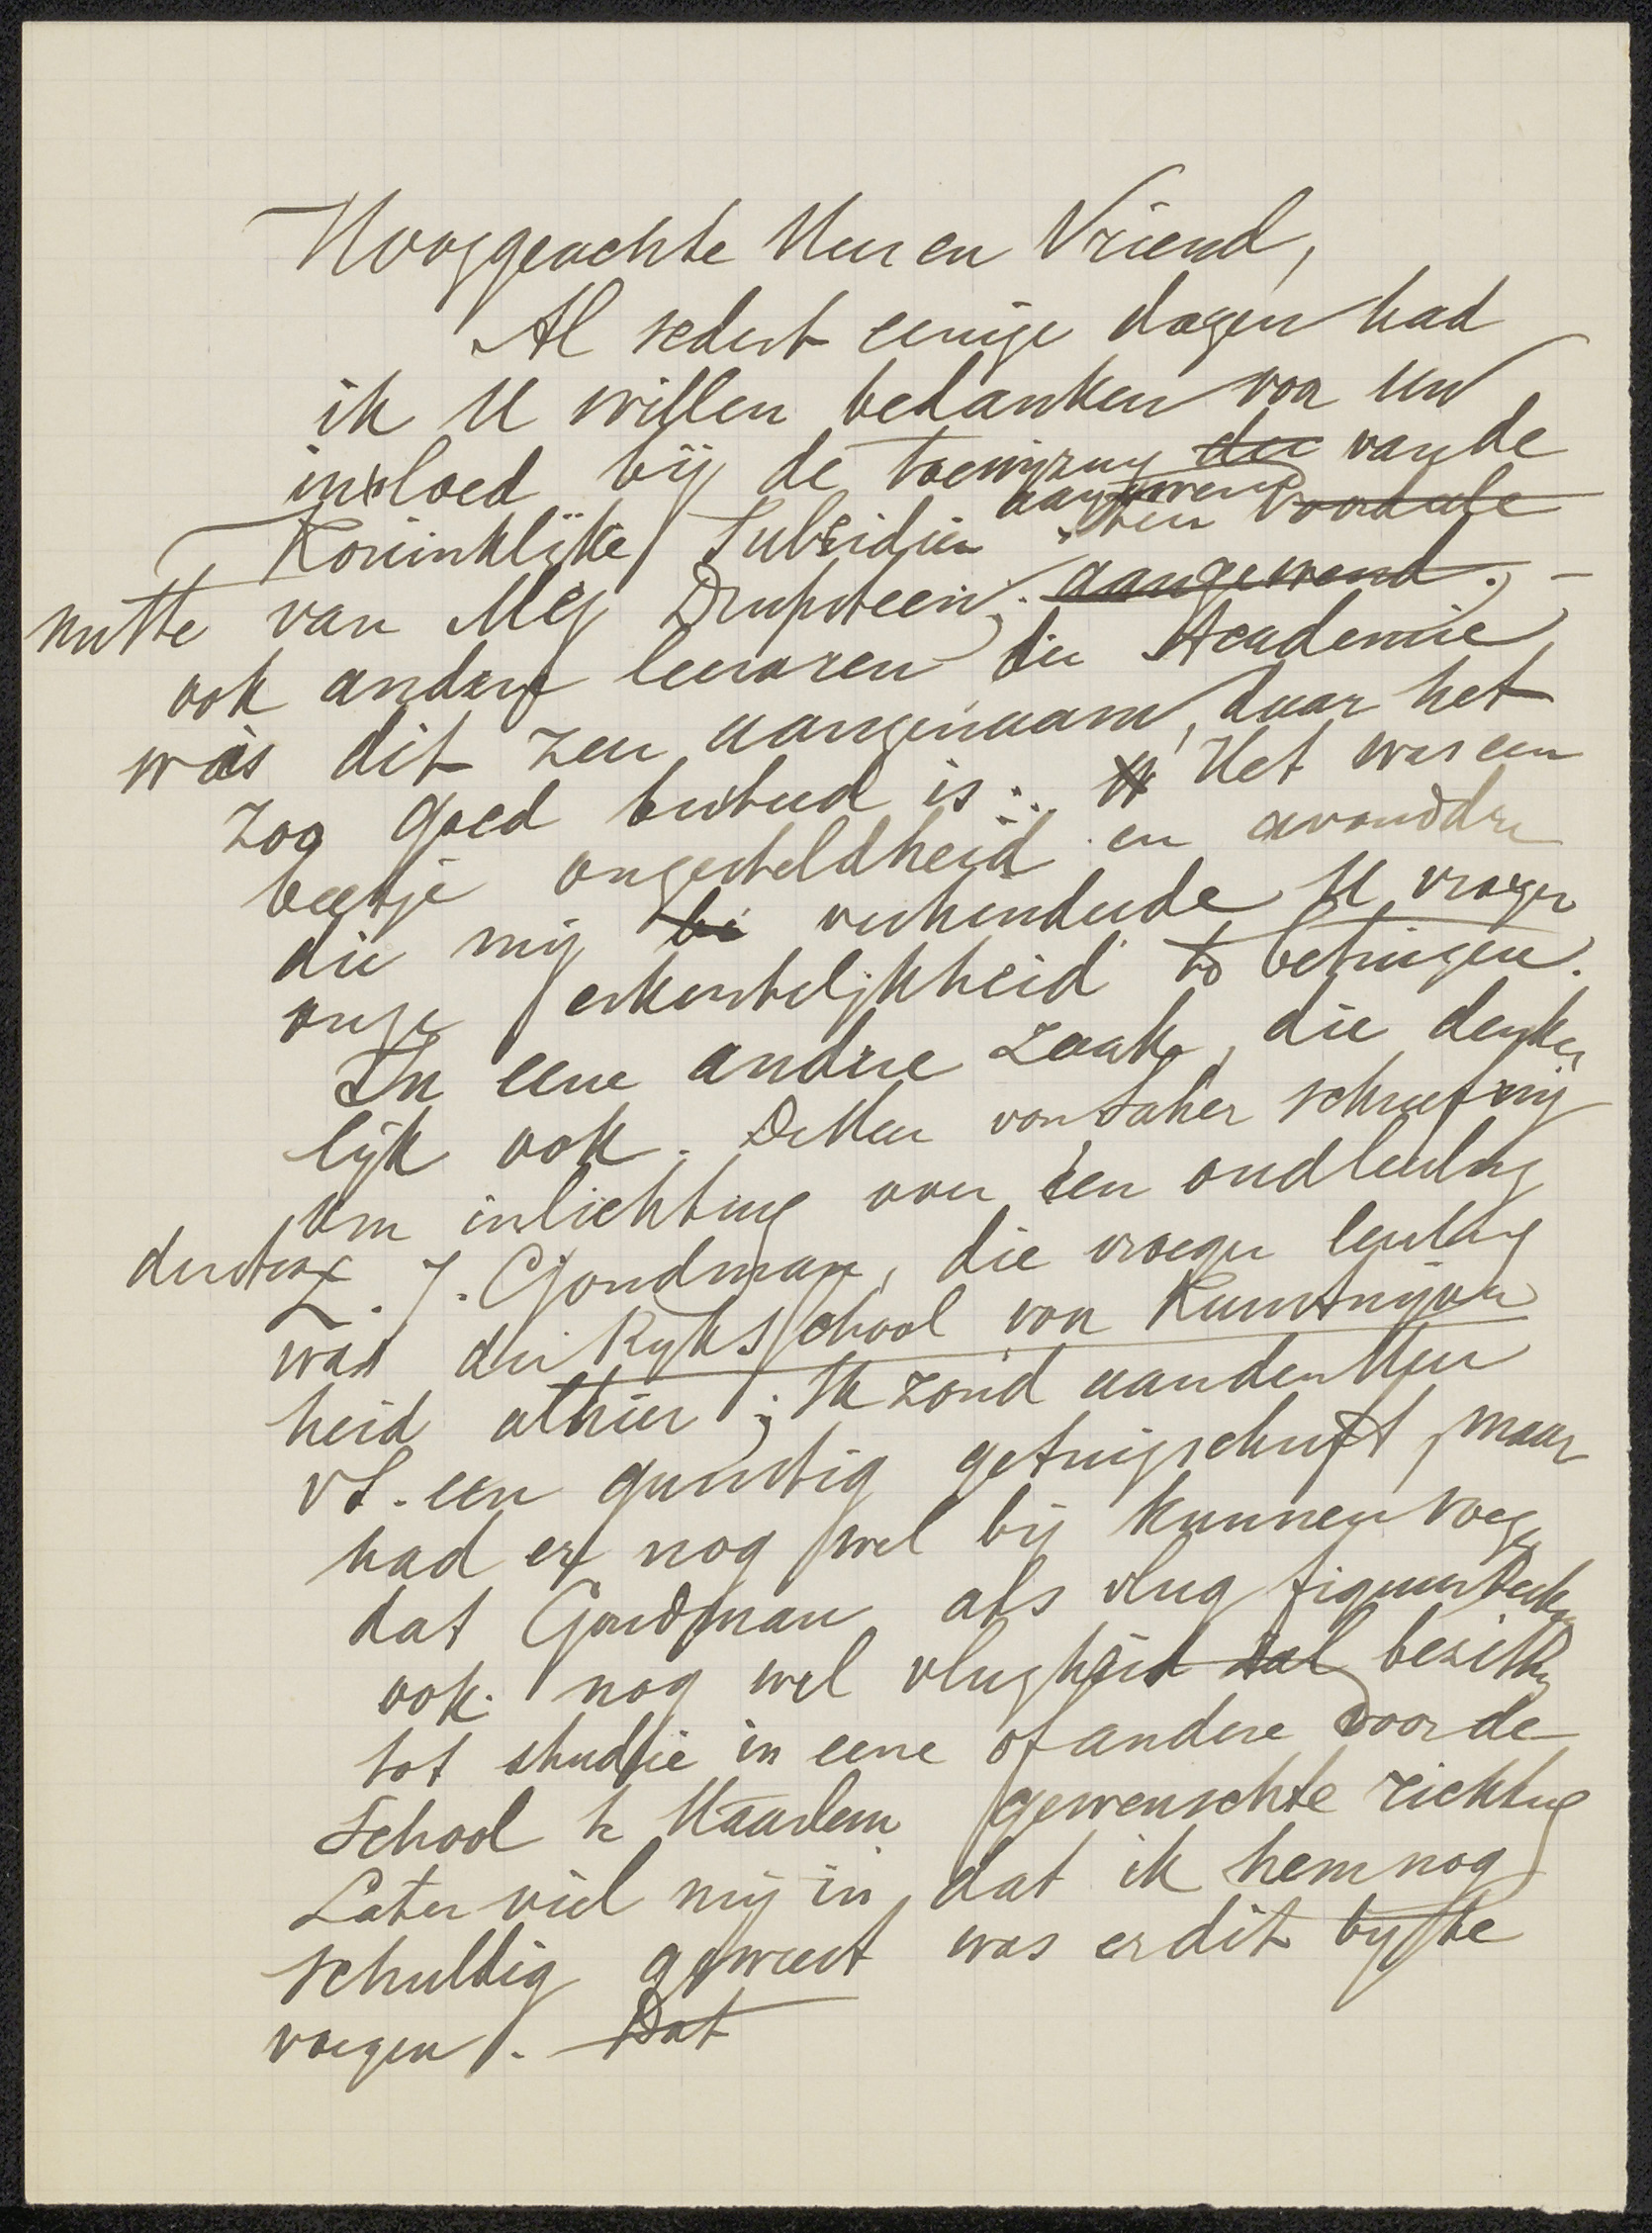 Hooggeachte Heer en Vriend,
Al sedert eenige dagen had
ik U willen bedanken voor uw
invloed bij de toewijzing der van de
aangewend
Koninklijke Subsidien ten voordeele
nutte van Mej Drupsteen, aangewend. –
ook andere leeraren der Academie
was dit zeer aangenaam, daar het
zoo goed besteed is. Het was een
beetje ongesteldheid en
die mij be verhinderde U vroeger
onze erkentelijkheid te betuigen.
In eene andere zaak, die denke
lijk ook. De Heer von Saher schreef mij
om inlichting over een oudleerling
L. J. Goudman, die vroeger leerling
was der Rijksschool voor Kunstnijver
heid alhier; Ik zond aan den Heer
v S. een gunstig getuigschrift, maar
had er nog wel bij kunnen voegen
dat Goudman als vlug
ook nog wel vlugheid zal bezitten
tot studie in eene of andere voor de
School te Haarlem gewenschte richting
Later viel mij in, dat ik hem nog
schuldig geweest was er dit bij te
voegen. Dat